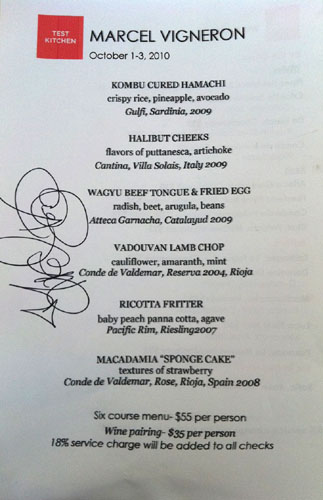 TEST
KITCHEN
MARCEL VIGNERON
October 1-3, 2010
KOMBU CURED HAMACHI
crispy rice, pineapple, avocado
Gulfi, Sardinia, 2009
HALIBUT CHEEKS
flavors of puttanesca, artichoke
Cantina, Villa Solais, Italy 2009
WAGYU BEEF TONGUE & FRIED EGG
radish, beet, arugula, beans
Atteca Garnacha, Catalayud 2009
VADOUVAN LAMB CHOP
cauliflower, amaranth, mint
Conde de Valdemar, Reserva 2004, Rioja
RICOTTA FRITTER
baby peach panna cotta, agave
Pacific Rim, Riesling2007
MACADAMIA "SPONGE CAKE"
textures of strawberry
Conde de Valdemar, Rose, Rioja, Spain 2008
Six course menu- $55 per person
Wine pairing- $35 per person
18% service charge will be added to all checks